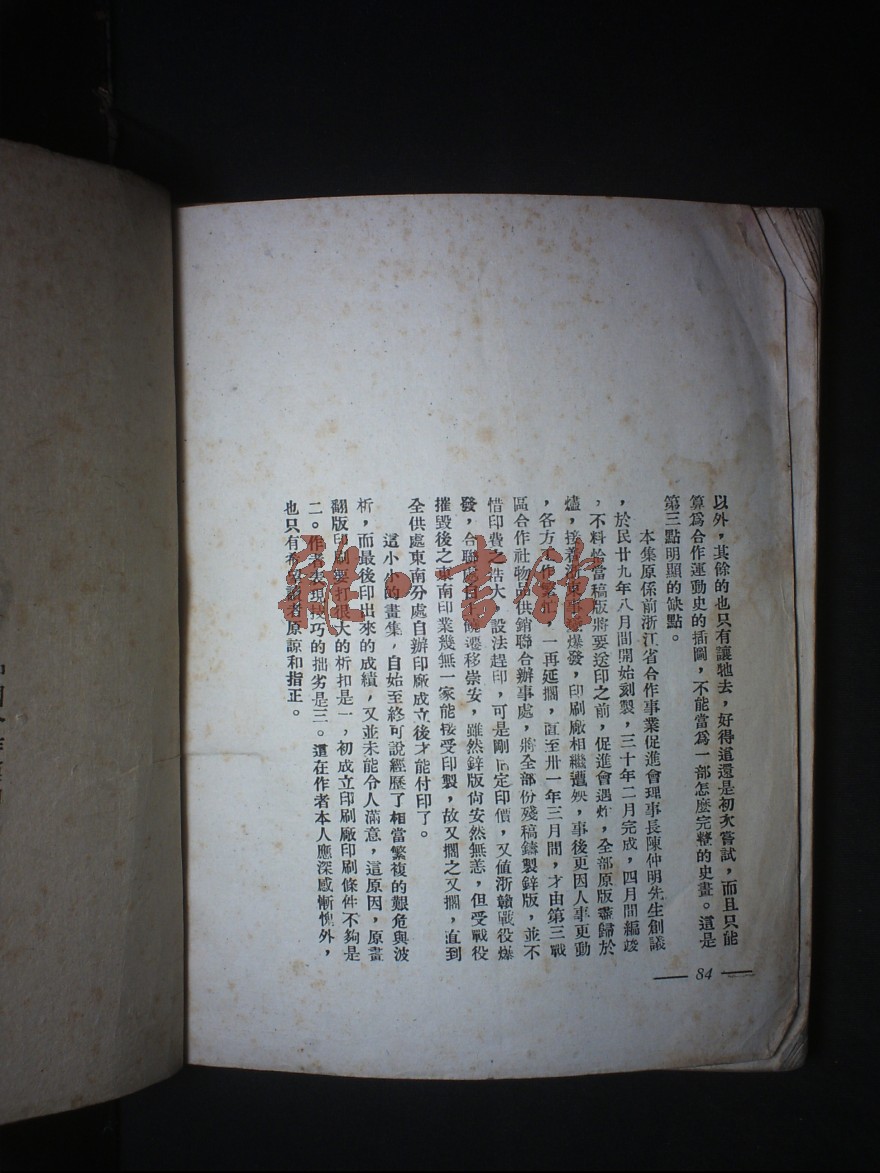 以外，其餘的也只有讓牠去，好得這還是初次嘗試，而且只能
算爲合作運動史的插圖，不能當爲一部怎麼完整的史畫。這是
第三點明顯的缺點。
本集原係前浙江省合作事業促進會理事長陳仲明先生創議
，於民廿九年八月間開始刻製，三十年二月完成，四月間編竣
，不料恰當稿版將要送印之前，促進會遇炸，全部原版盡歸於
燼，接着浙東事變爆發，印刷廠相繼遭殃，事後更因人事更動
，各方 一再延擱，直至卅一年三月間，才由第三戰
區合作社物品供銷聯合辦事處，將全部份殘稿鑄製鋅版，並不
惜印費之浩大，設法趕印，可是剛 定印價，又値浙贛戰役爆
發，合聯 遷移崇安，雖然鋅版尙安然無恙，但受戰役
摧毀後之東南印業幾無一家能接受印製，故又擱之又擱，直到
全供處東南分處自辦印廠成立後才能付印了。
這小小的畫集，自始至終可說經歷了相當繁複的艱危與波
析，而最後印出來的成績，又並未能令人滿意，這原因，原畫
翻版印刷要打很大的折扣是一，初成立印刷廠印刷條件不夠是
二。作者表現技巧的拙劣是三。這在作者本人應深感慚愧外，
也只有希望讀者原諒和指正。
84
雜·書館